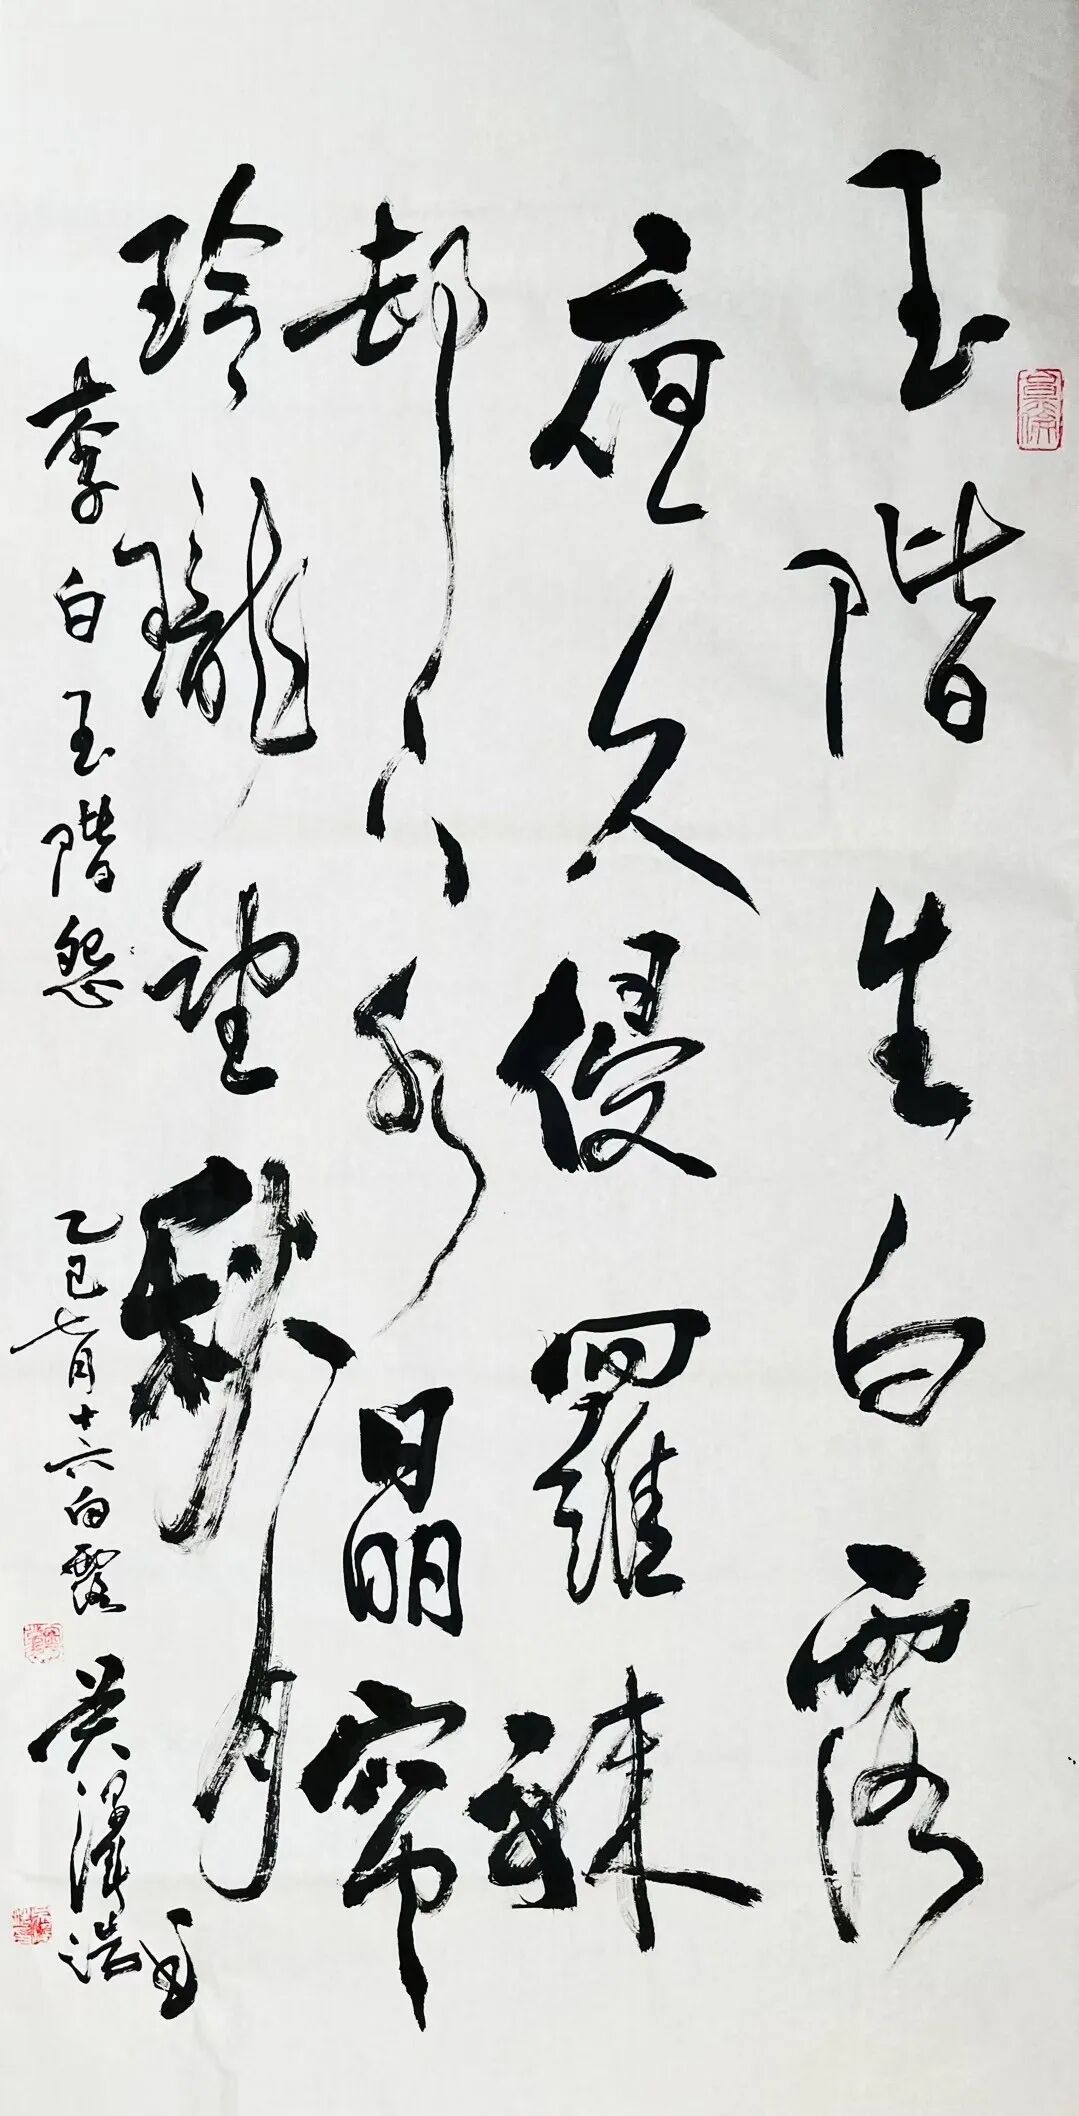 玉階生白露
夜久侵羅袜
却下水晶帘
玲瓏望秋月
李白玉階怨 乙巳七月十六白露 吴澤浩